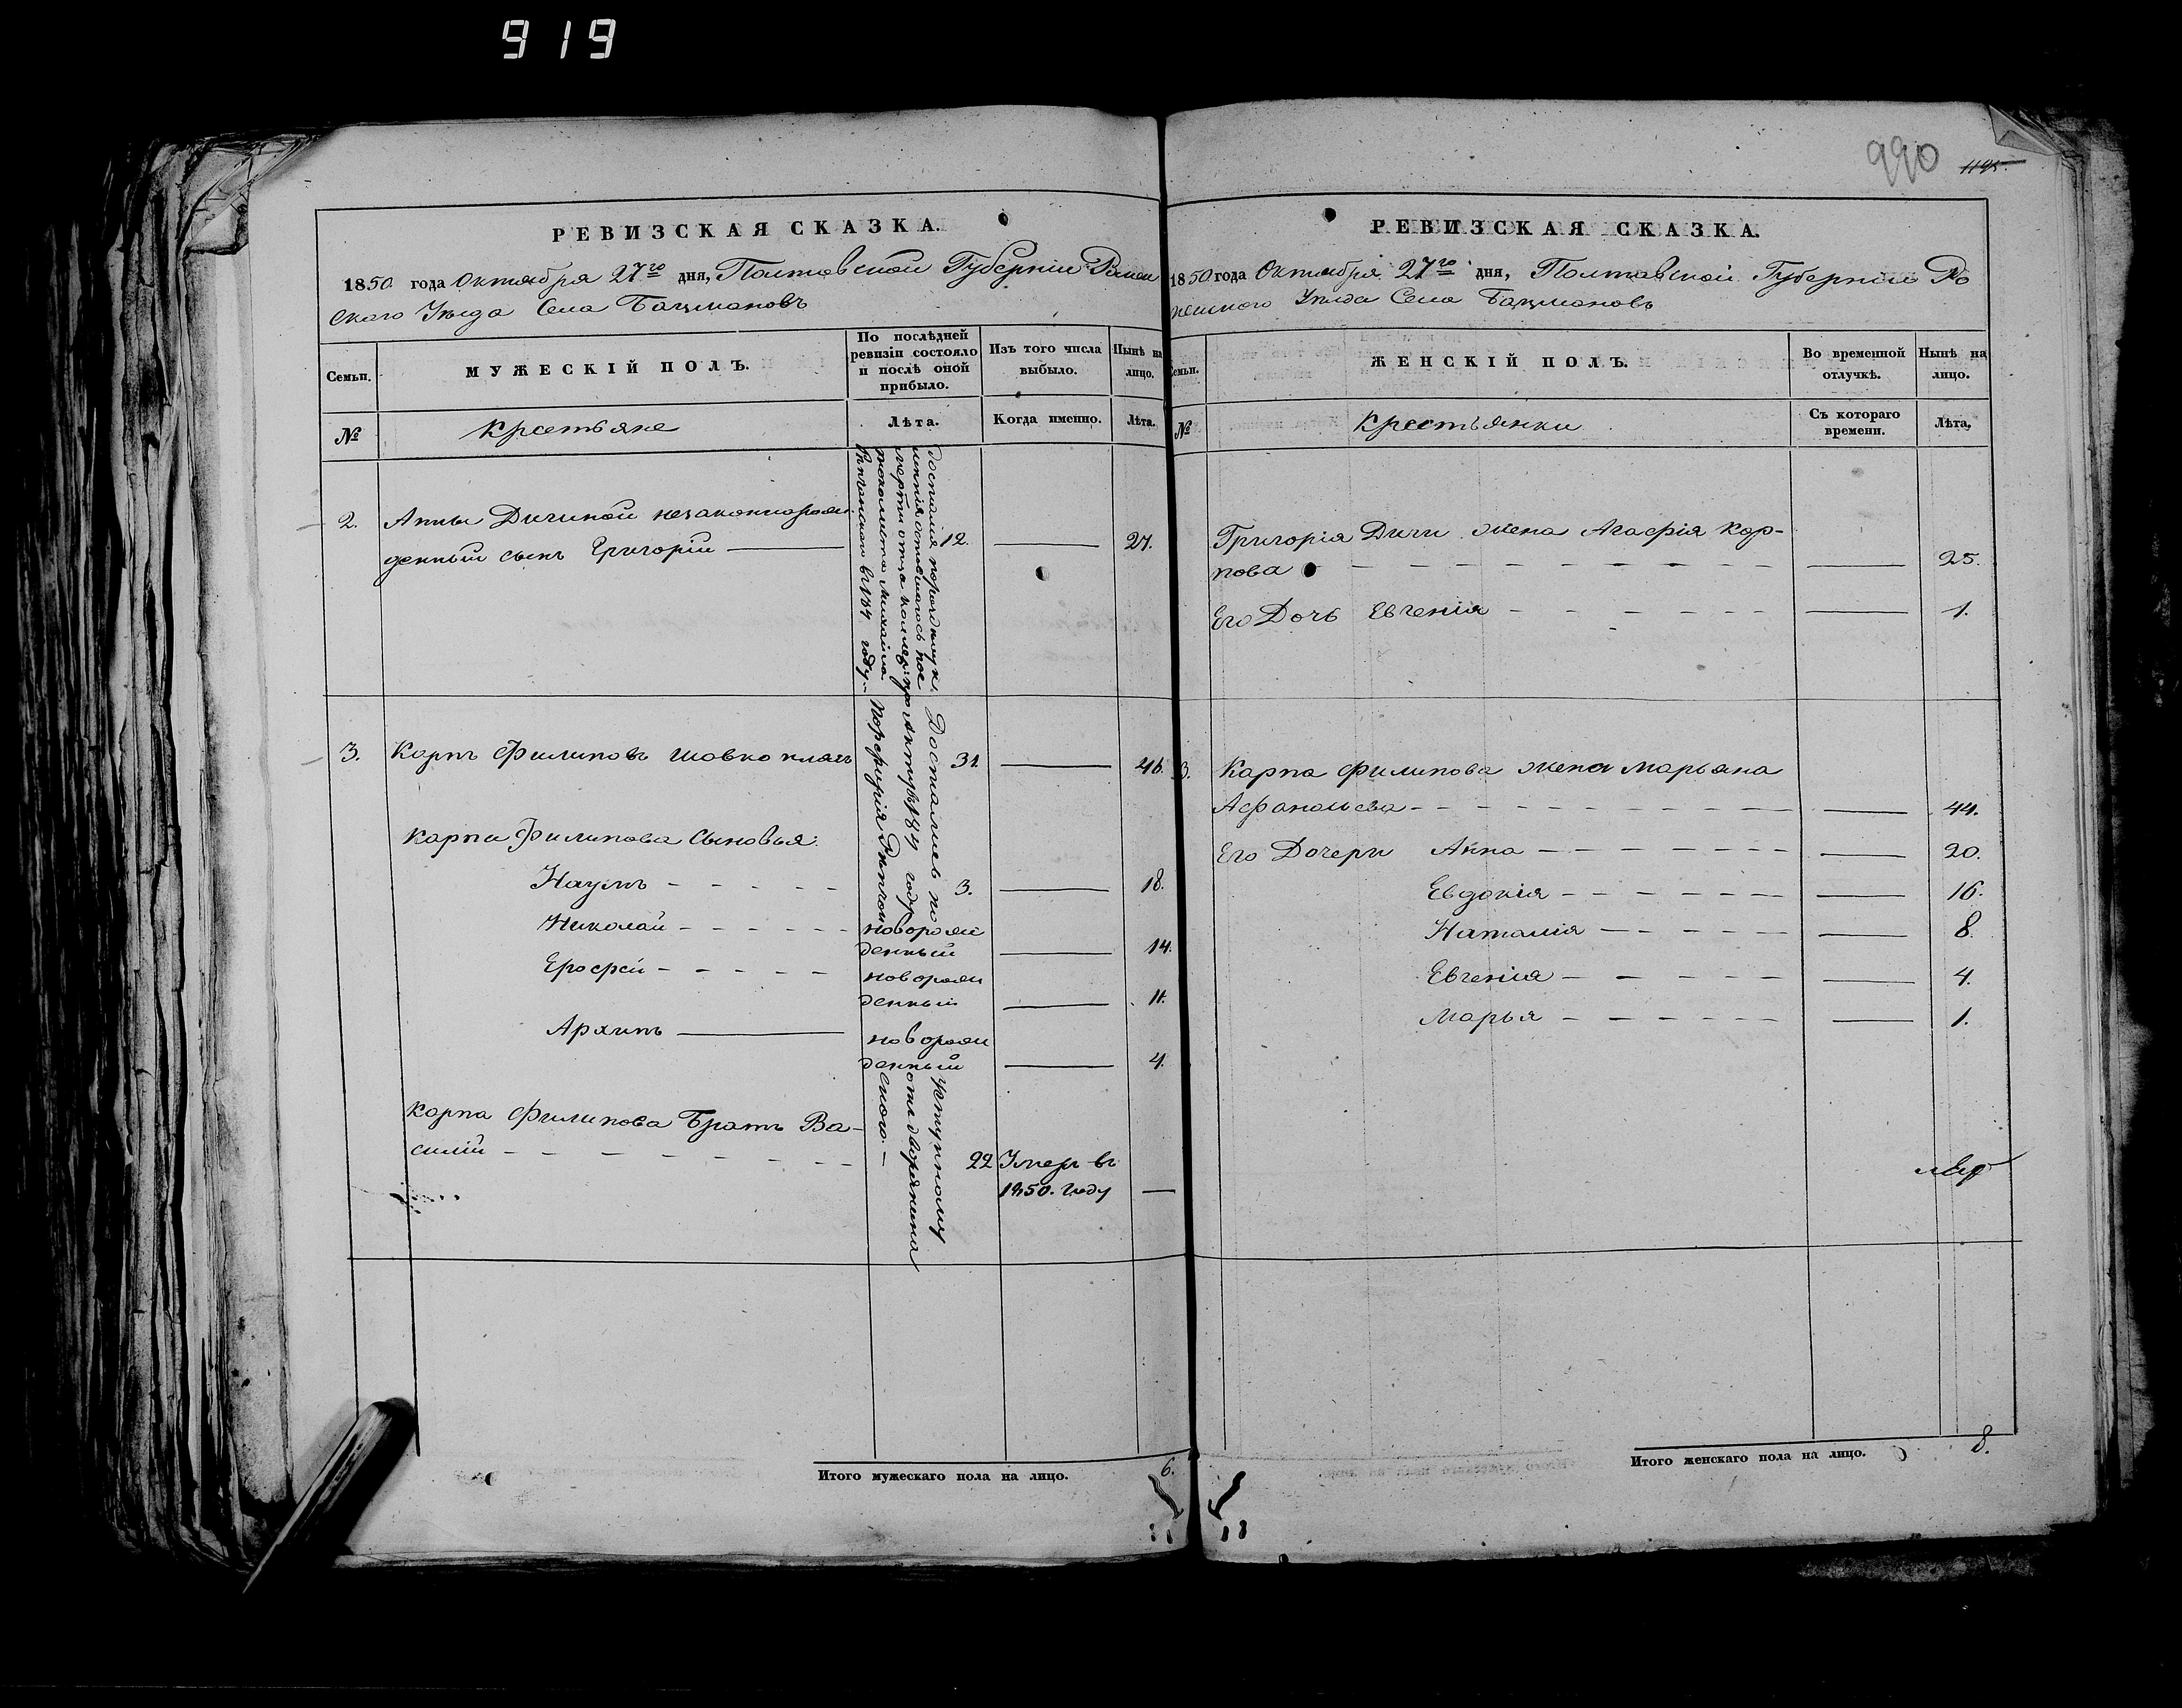 919
990
1195.
РЕВИЗСКАЯ СКАЗКА.
1850 года Октября 27го дня, Полтавской Губерніи Ромен
ского Уезда Села Бацмановъ
Семьи.
МУЖЕСКІЙ ПОЛЪ.
По послѣдней
ревизіи состояло
и послѣ оной
прибыло.
Изъ того числа
выбыло.
Нынѣ на
лицо.
№
Крестьяне
Лѣта.
Когда именно.
Лѣта.
2. Анны Дичиной незаконнорож
денный сынъ Григорій 12. 27.
Достался порозделу к
имения оставшагося пос
смерти отца коллеж:
Михайла
в 1834 году
3. Карпъ Филиповъ Шовкопляс 31. 46.
Карпа Филипова Сыновья:
Наумъ 3. 18.
Николай новорож
денный 14.
Ерофей новорож
денный 11.
Архипъ новорож
денный 4.
Достались по
акту 1834 году
Порфирія
уступному
от дворянина
ского
Карпа Филипова Братъ Ва-
силій 22 Умеръ въ
1850. году
Итого мужескаго пола на лицо. 6.
РЕВИЗСКАЯ СКАЗКА.
1850 года Октября 27го дня, Полтавской Губерніи Ро
менского Уезда Села Бацмановъ
Семьи.
ЖЕНСКІЙ ПОЛЪ.
Во временной
отлучкѣ.
Нынѣ на
лицо.
№
Крестьянки
Съ котораго
времени.
Лѣта,
Григорія Дичи жена Агафія Кар-
пова 25.
Его Дочь Евгенія 1.
3. Карпа Филипова жена Марьяна
Афанасьева 44.
Его Дочери Анна 20.
Евдокія 16.
Наталія 8.
Евгенія 4.
Марья 1.
Итого женскаго пола на лицо. 8.